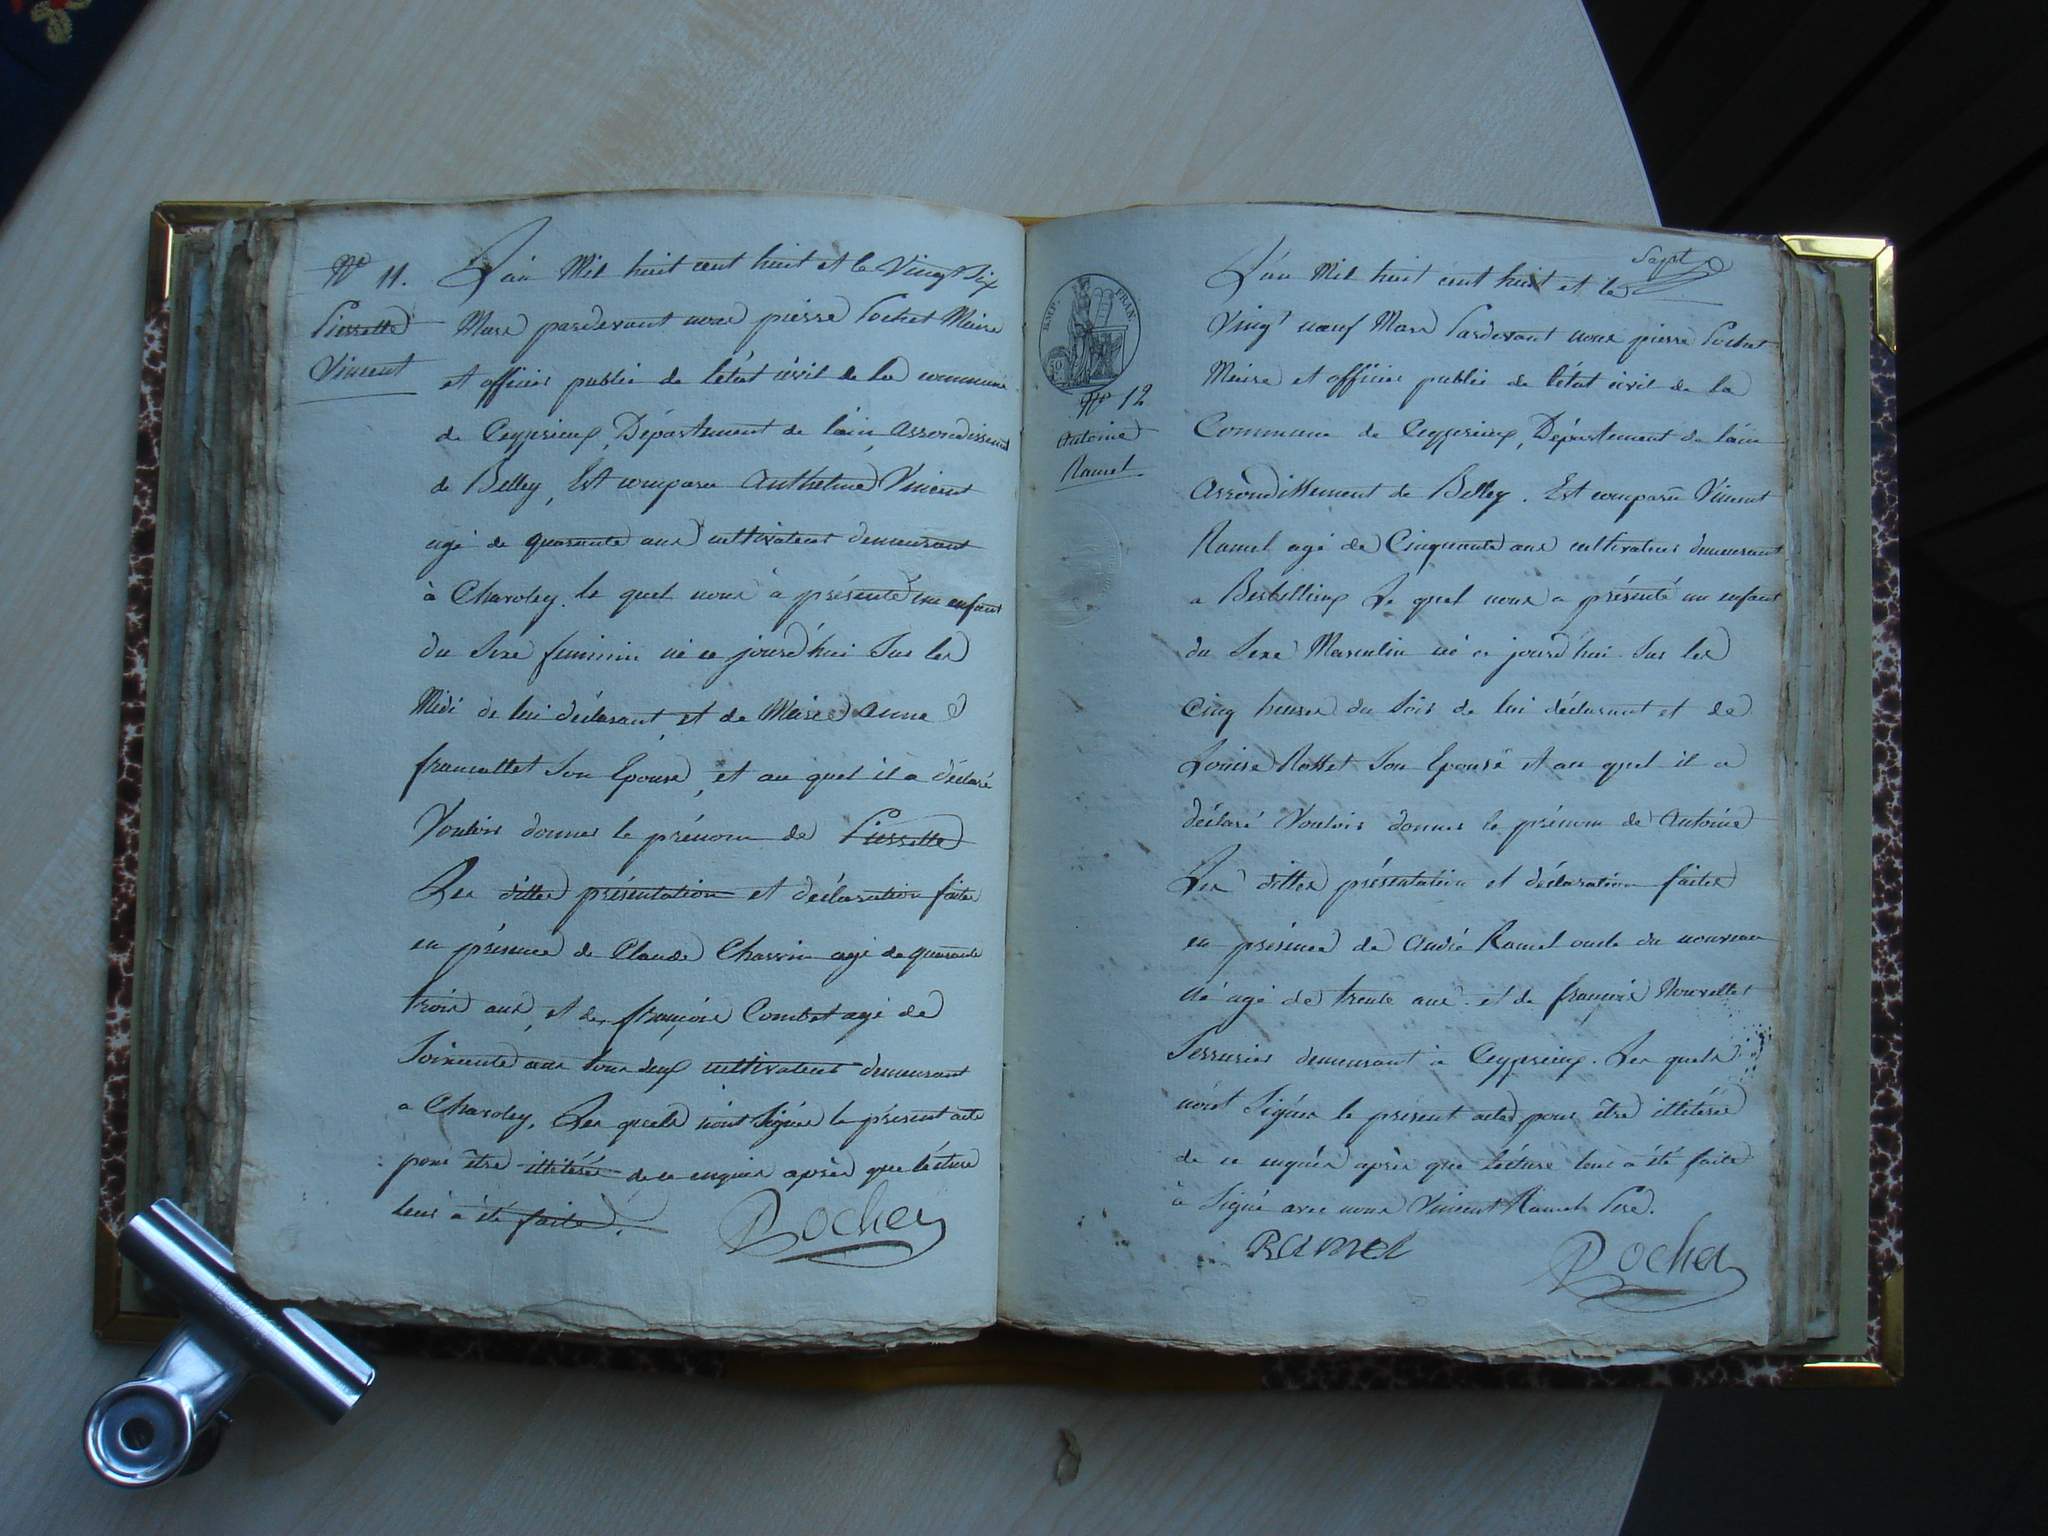 N° 11.
Pierrette
Vincent
L'an Mil huit cent huit et le Vingt Six
Mars pardevant nous pierre Pochet Maire
et officier public de l'état civil de la commune
de Ceyzerieux, Département de l'ain, arrondissement
de Belley, Est comparu Anthelme Vincent
agé de quarante ans cultivateur demeurant
à Charoley. le quel nous à présenté un enfant
du Sexe feminin né ce jourd'hui Sur les
Midi de lui déclarant, et de Marie Anne
francallet Son Epouse, et au quel il a déclaré
Vouloir donner le prénom de Pierrette
Les dittes présentation et déclaration faites
en présence de Claude Charvin agé de quarante
trois ans, et de françois Combet agé de
Soixante ans tous deux cultivateur demeurant
a Charoley, Les quels n'ont Signés le présent acte
pour être illitérés de ce enquis après que lécture
leur à été faite.
Pochet
Sept
EMP. FRAN.
N° 12
Antoine
Ramel.
L'an Mil huit cent huit et le
Vingt neuf Mars Pardevant nous pierre Pochet
Maire et officier public de l'état civil de la
Commune de Ceyzerieux, Département de l'ain
Arrondissement de Belley. Est comparu Vincent
Ramel agé de Cinquante ans cultivateur demeurant
a Le quel nous a présenté un enfant
du Sexe Masculin né ce jourd'hui Sur les
Cinq heures du Soir de lui déclarant et de
Louise Rosset Son Epouse et au quel il a
déclaré Vouloir donner le prénom de Antoine
Les dittes présentation et déclaration faites
en présence de André Ramel oncle du nouveau
né agé de trente ans et de françois Nouvellet
Serrurier demeurant à Ceyzerieux. Les quels
n'ont Signés le présent acte pour être illitérés
de ce enquis après que lécture leur à été faite
à Signé avec nous Vincent Ramel Père.
Ramel
Pochet